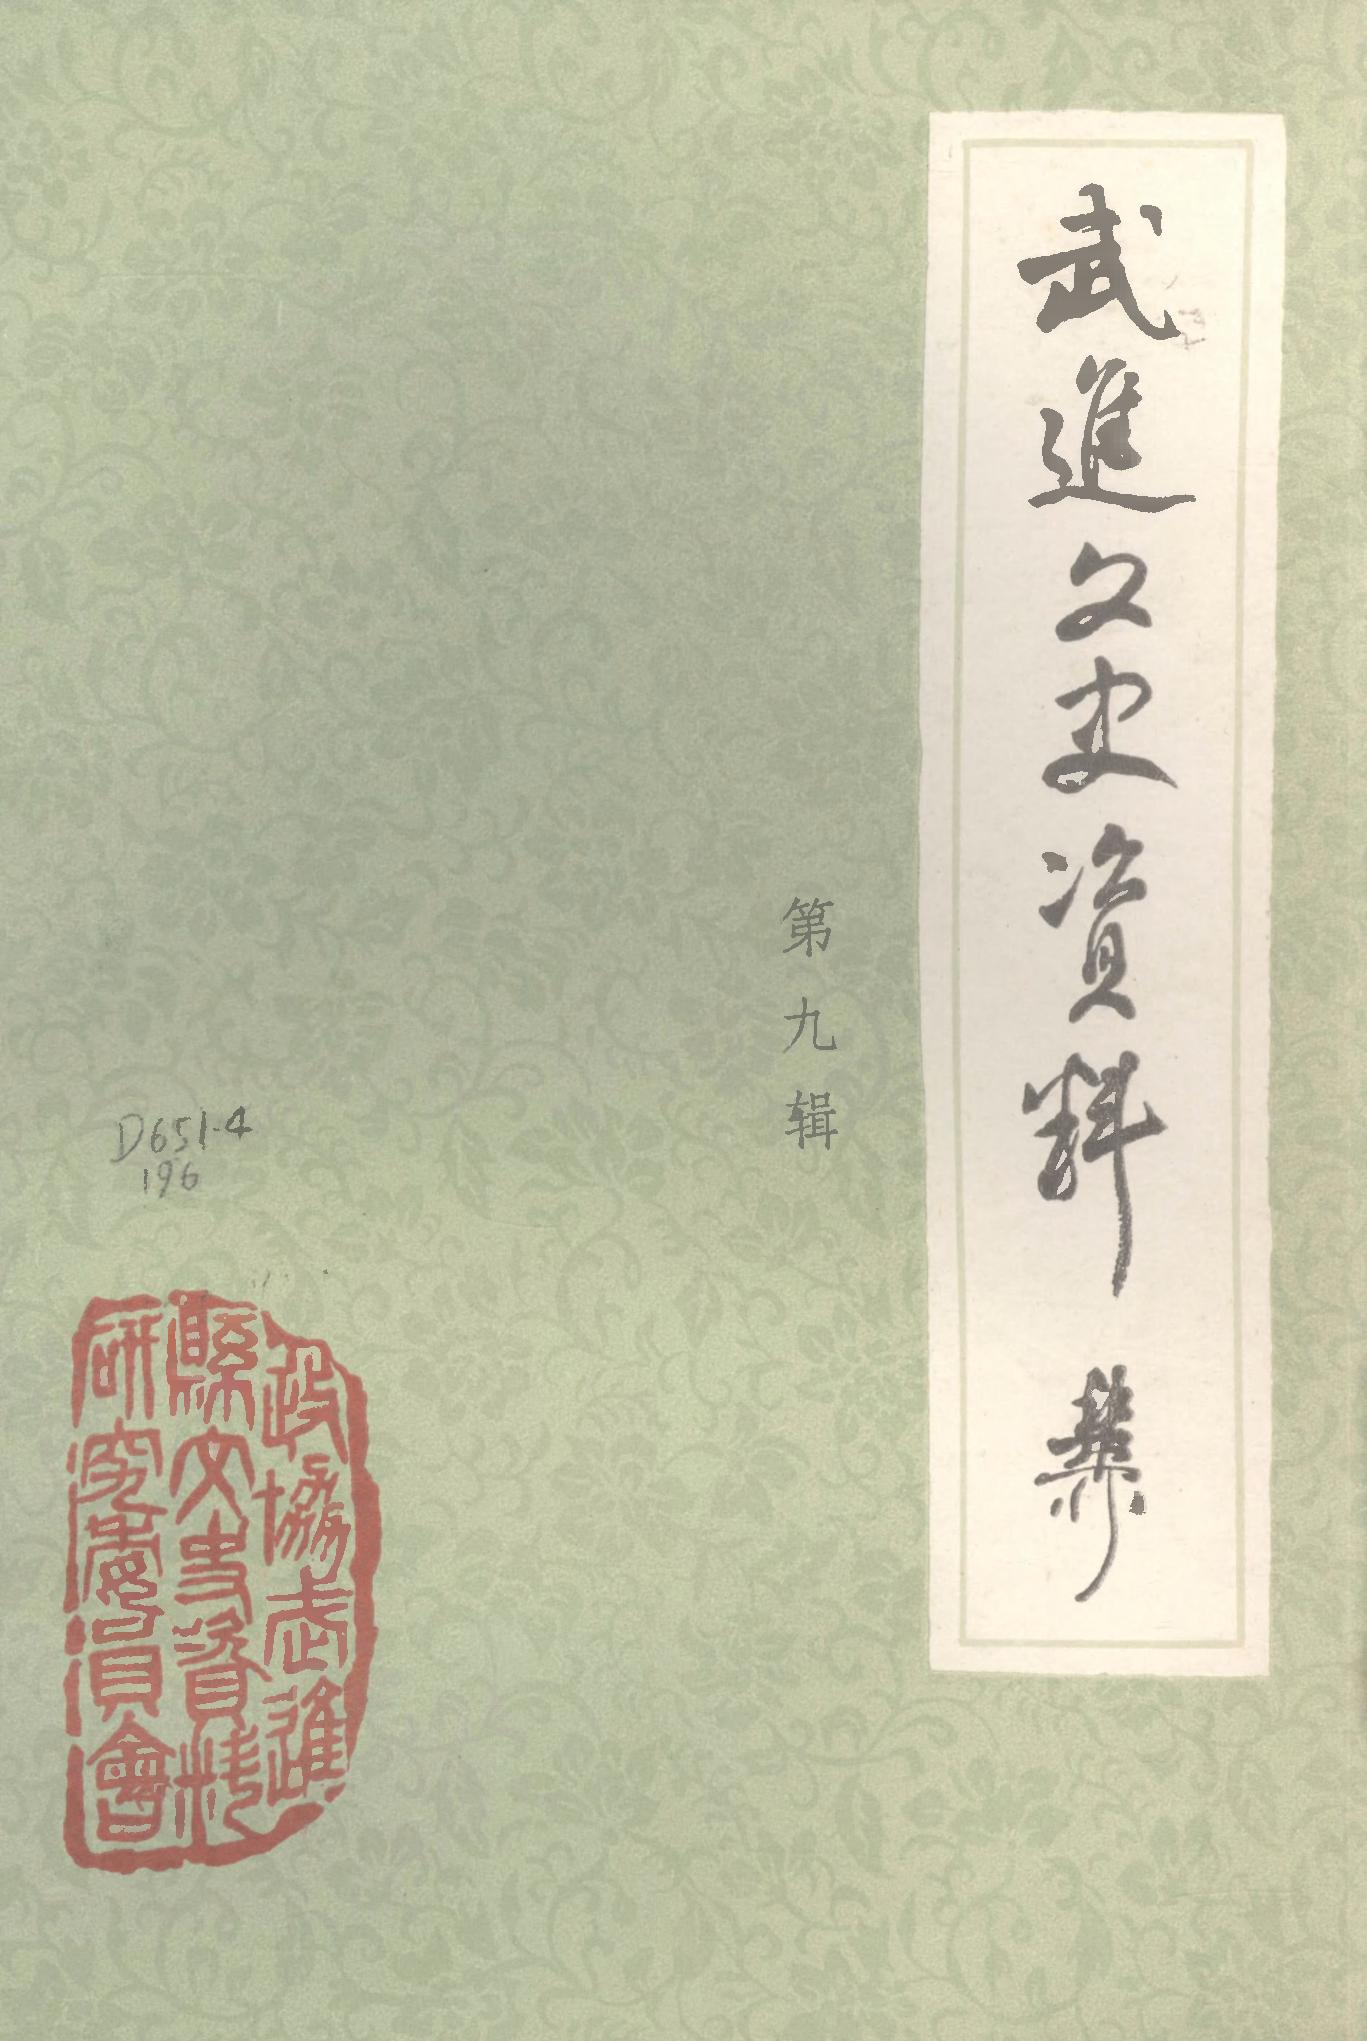 武進文史资料
第九辑
D651.4
196
政協武進
縣文史資料
研究委員會